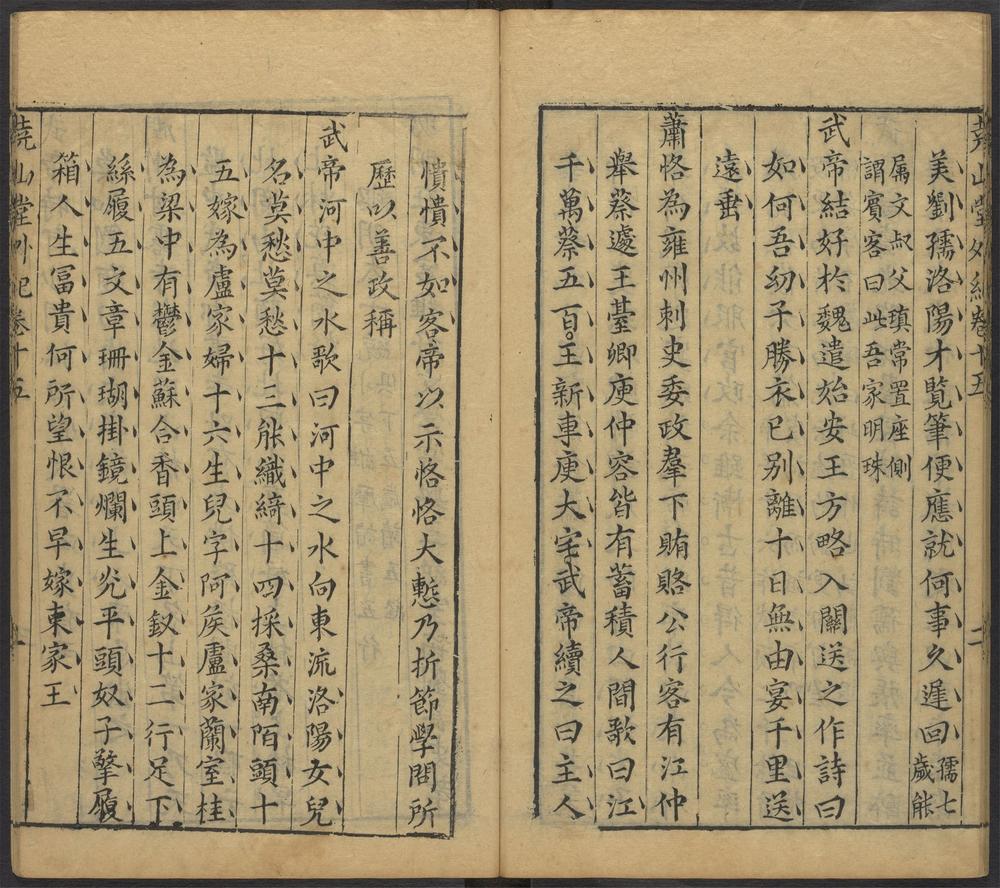 堯山堂外紀卷十五 二
美劉孺洛陽才覽筆便應就何事久遲回孺七歲能
屬文叔父瑱常置座側
謂賓客曰此吾家明珠
武帝結好於魏遣始安王方略入關送之作詩曰
如何吾幼子勝衣已别離十日無由宴千里送
遠垂
蕭恪為雍州刺史委政羣下賄賂公行客有江仲
舉蔡遽王臺卿庾仲容皆有蓄積人間歌曰江
千萬蔡五百王新車庾大宅武帝續之曰主人
憒憒不如客帝以示恪恪大慙乃折節學問所
歷以善政稱
武帝河中之水歌曰河中之水向東流洛陽女兒
名莫愁莫愁十三能織綺十四採桑南陌頭十
五嫁為盧家婦十六生兒字阿侯盧家蘭室桂
為梁中有鬱金蘇合香頭上金釵十二行足下
絲履五文章珊瑚掛鏡爛生光平頭奴子擎履
箱人生冨貴何所望恨不早嫁東家王
堯山堂外紀卷十五